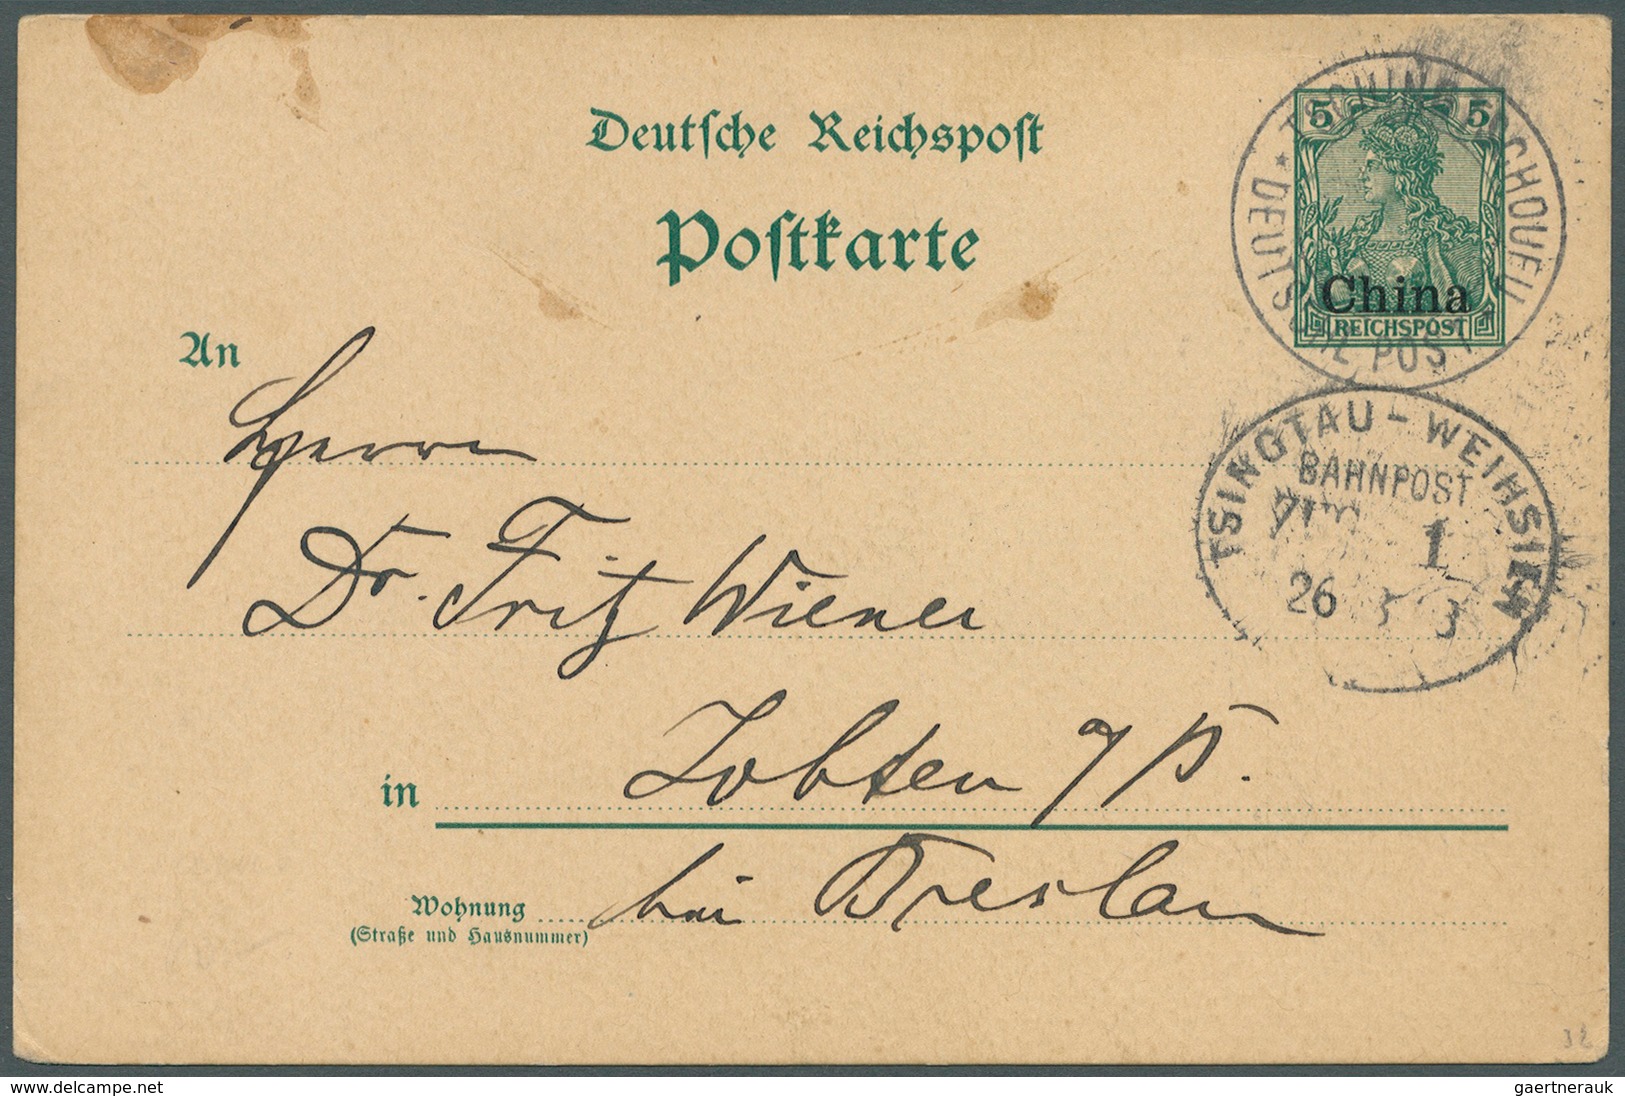 Deutſche Reichspoſt
Poſtkarte
5 5
China
REICHSPOST
DEUTSCHE POST
TSINGTAU - WEIHSIEN
BAHNPOST
1
26 3 3
An
Herrn
Dr. Fritz Wiener
in Zobten a/B.
Wohnung bei Breslau
(Straße und Hausnummer)
32
delcampe.net
gaertnerauk